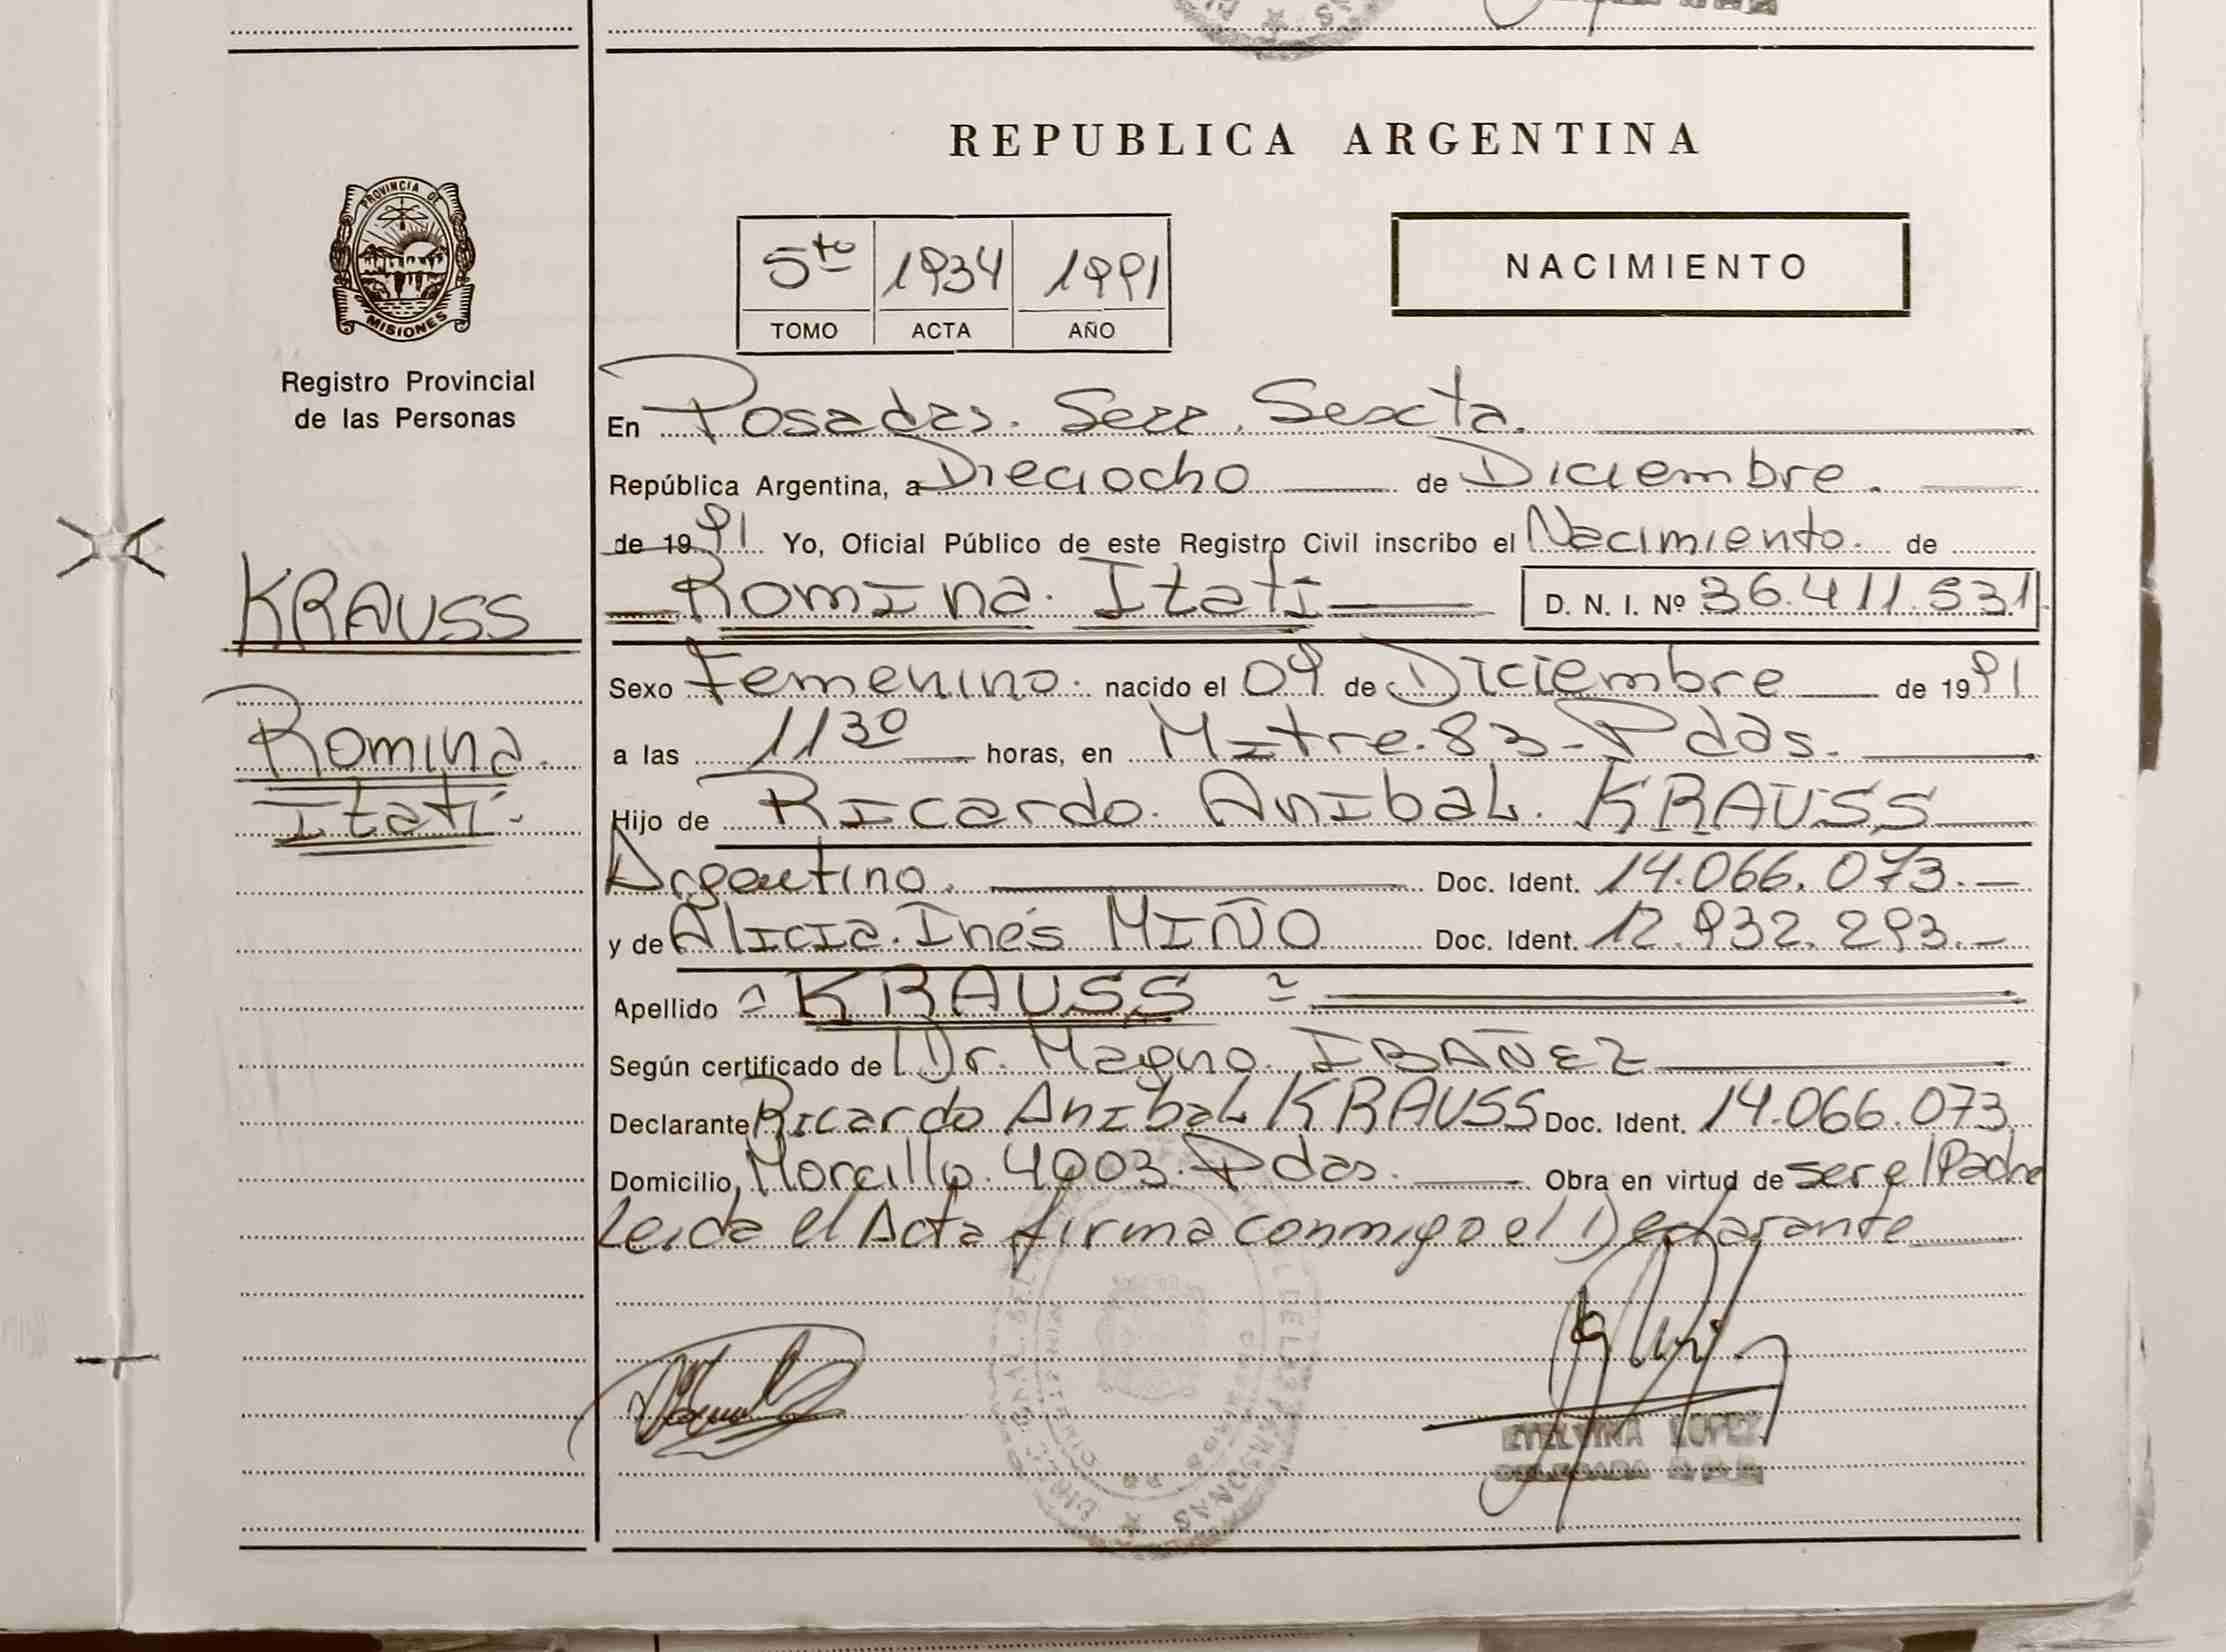 REPUBLICA ARGENTINA
PROVINCIA DE
MISIONES
Registro Provincial
de las Personas
5to 1934 1991
TOMO ACTA AÑO
NACIMIENTO
En Posadas. Secc. Sexta.
República Argentina, a Dieciocho de Diciembre.
de 1991 Yo, Oficial Público de este Registro Civil inscribo el Nacimiento. de
Romina. Itatí D. N. I. Nº 36.411.531
KRAUSS
Romina.
Itatí.
Sexo Femenino. nacido el 09 de Diciembre de 1991
a las 11 30 horas, en Mitre. 83 - Pdas.
Hijo de Ricardo. Anibal. KRAUSS
Argentino. Doc. Ident. 14.066.073.-
y de Alicia. Inés MIÑO Doc. Ident. 12.932.293.-
Apellido = KRAUSS =
Según certificado de Dr. Magno. IBAÑEZ
Declarante Ricardo Anibal KRAUSS Doc. Ident. 14.066.073.
Domicilio, Morcillo. 4003. Pdas. Obra en virtud de ser el Padre
Leida el Acta firma conmigo el Declarante
ETELVINA LOPEZ
DELEGADA